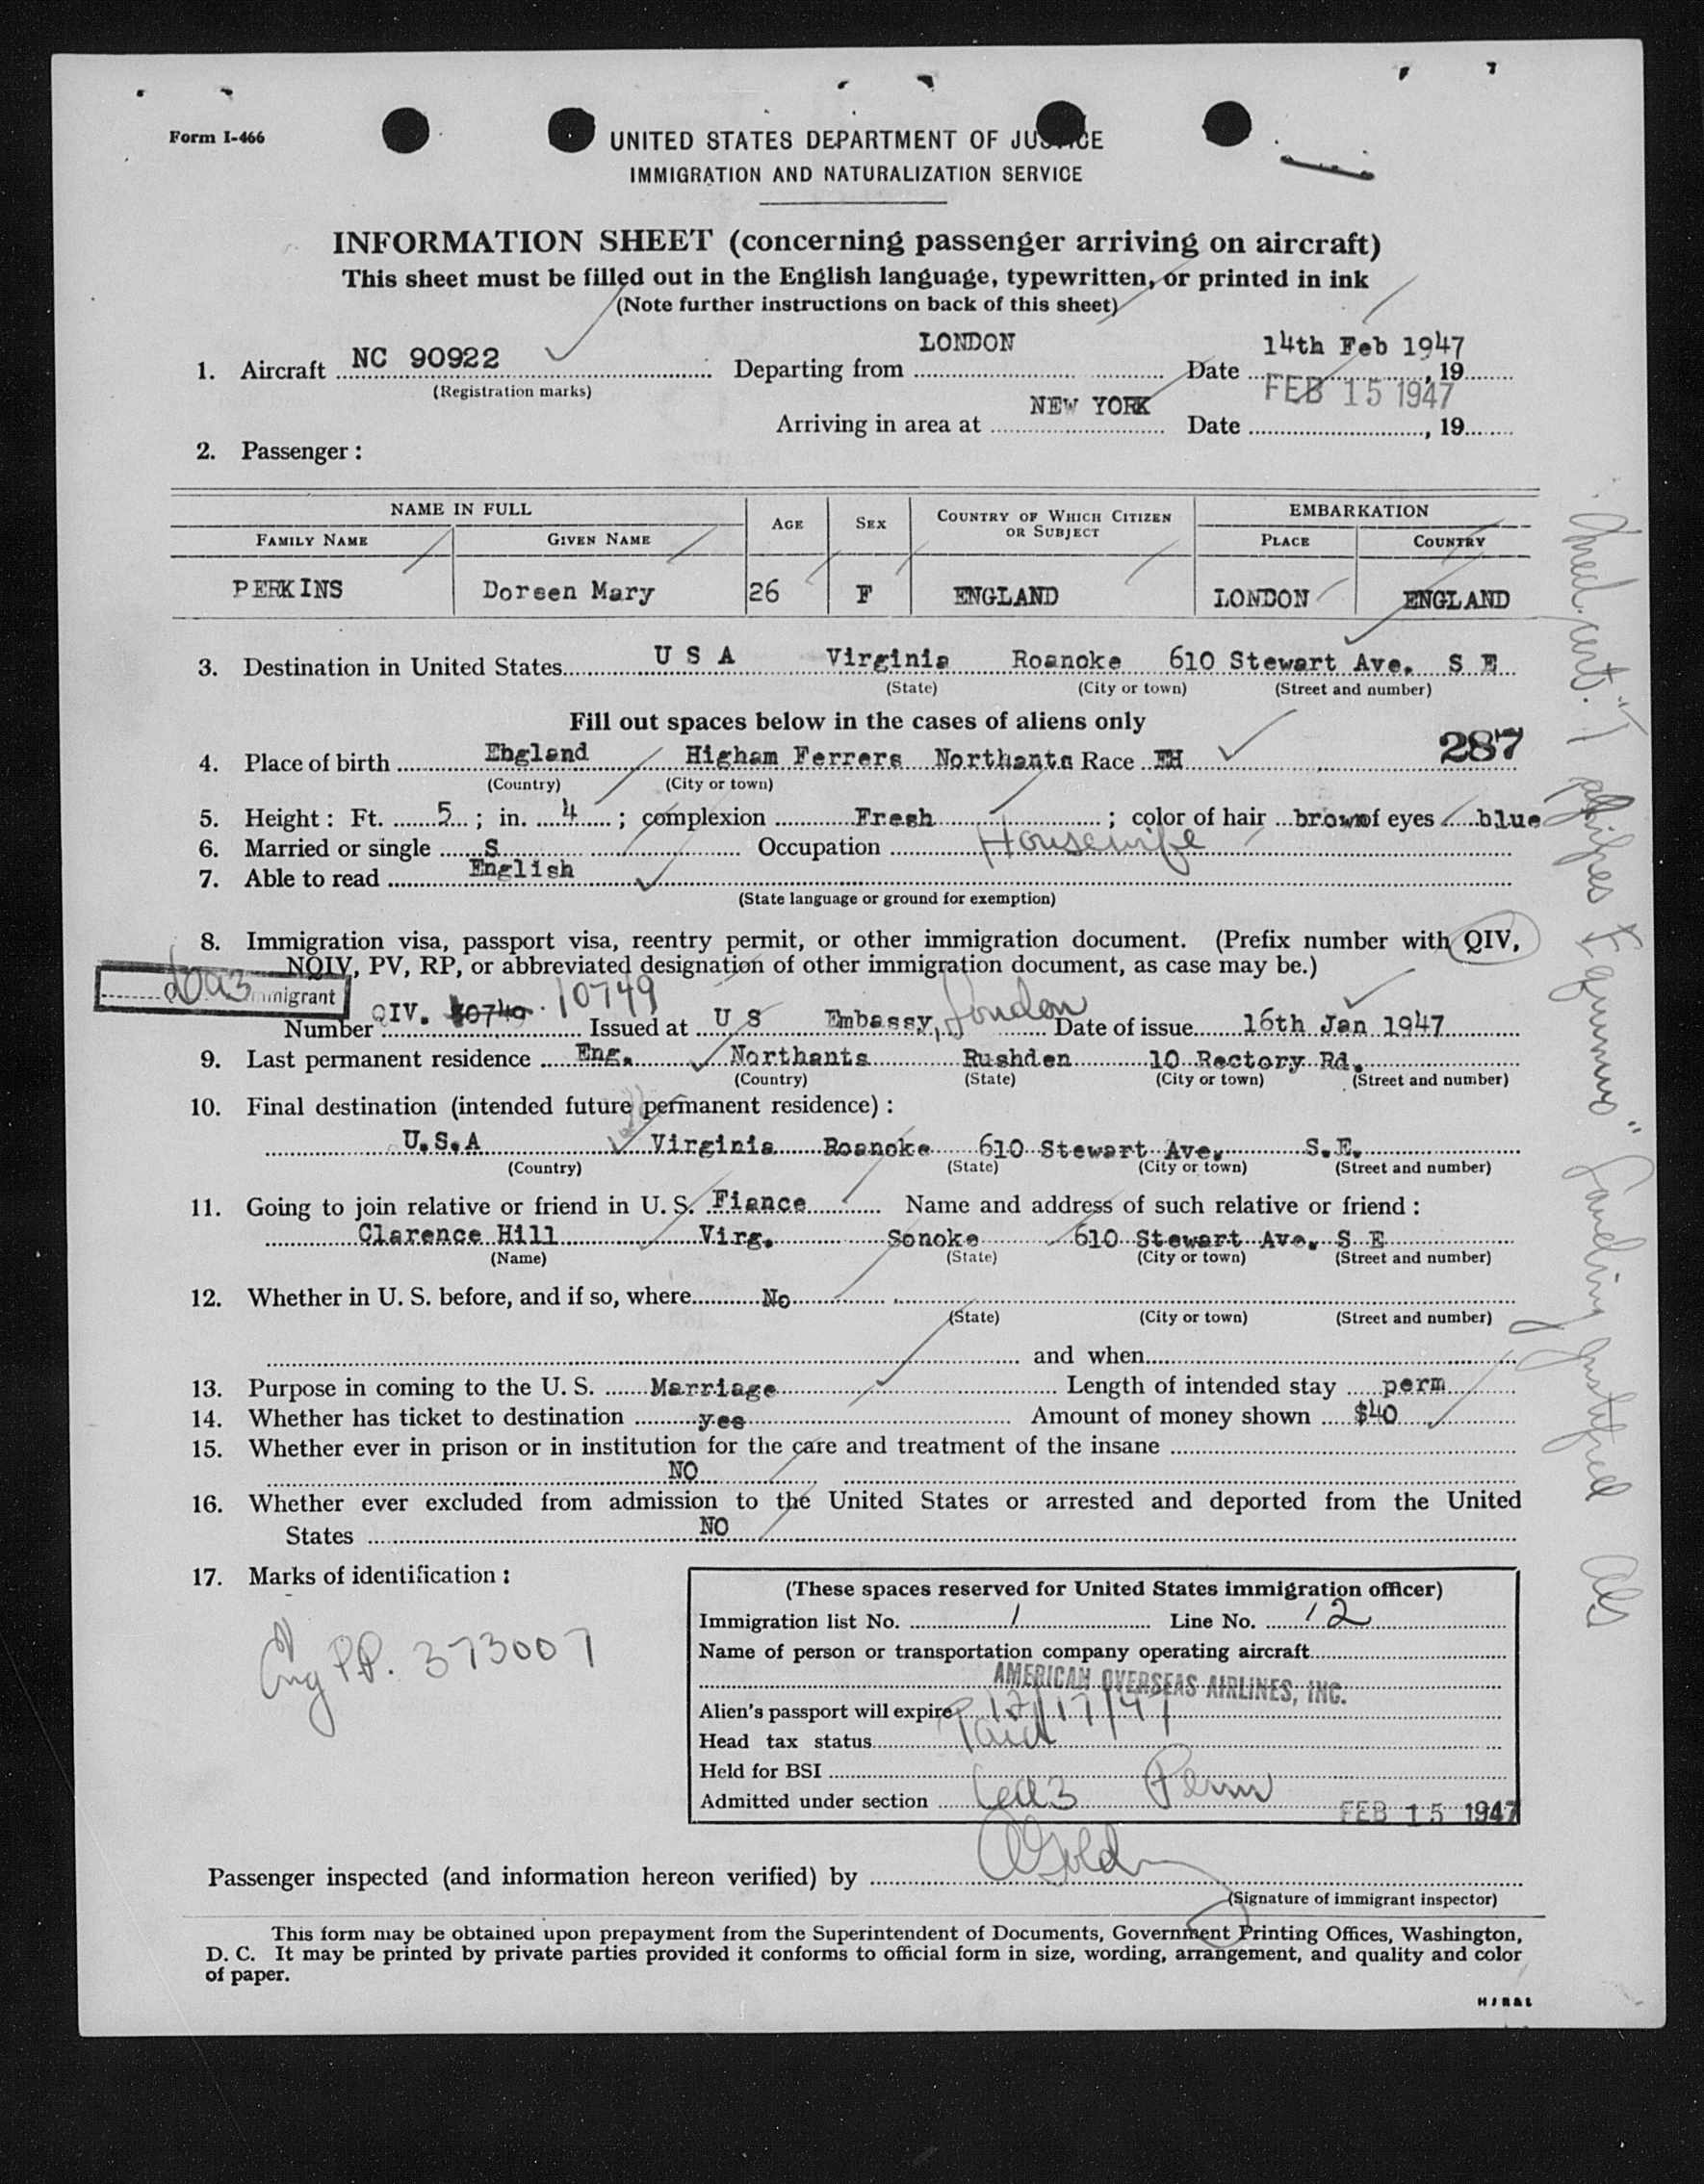 Form I-466
UNITED STATES DEPARTMENT OF JUSTICE
IMMIGRATION AND NATURALIZATION SERVICE
INFORMATION SHEET (concerning passenger arriving on aircraft)
This sheet must be filled out in the English language, typewritten, or printed in ink
(Note further instructions on back of this sheet)
LONDON 14th Feb 1947
1. Aircraft NC 90922 Departing from Date , 19
(Registration marks) FEB 15 1947
NEW YORK
Arriving in area at Date , 19
2. Passenger:
NAME IN FULL AGE SEX COUNTRY OF WHICH CITIZEN OR SUBJECT EMBARKATION
FAMILY NAME GIVEN NAME PLACE COUNTRY
PERKINS Doreen Mary 26 F ENGLAND LONDON ENGLAND
3. Destination in United States U S A Virginia Roanoke 610 Stewart Ave. S E
(State) (City or town) (Street and number)
Fill out spaces below in the cases of aliens only
287
4. Place of birth Ebgland Higham Ferrers Northants Race EH
(Country) (City or town)
5. Height: Ft. 5 ; in. 4 ; complexion Fresh ; color of hair brown of eyes blue
6. Married or single S Occupation Housewife
7. Able to read English
(State language or ground for exemption)
8. Immigration visa, passport visa, reentry permit, or other immigration document. (Prefix number with QIV,
NQIV, PV, RP, or abbreviated designation of other immigration document, as case may be.)
Immigrant
Number QIV. 10749 10749 Issued at U S Embassy, London Date of issue 16th Jan 1947
9. Last permanent residence Eng. Northants Rushden 10 Rectory Rd.
(Country) (State) (City or town) (Street and number)
10. Final destination (intended future permanent residence):
U.S.A Virginia Roanoke 610 Stewart Ave. S.E.
(Country) (State) (City or town) (Street and number)
11. Going to join relative or friend in U. S. Fiance Name and address of such relative or friend:
Clarence Hill Virg. Sonoke 610 Stewart Ave. S E
(Name) (State) (City or town) (Street and number)
12. Whether in U. S. before, and if so, where No
(State) (City or town) (Street and number)
and when
13. Purpose in coming to the U. S. Marriage Length of intended stay perm
14. Whether has ticket to destination yes Amount of money shown $40
15. Whether ever in prison or in institution for the care and treatment of the insane
NO
16. Whether ever excluded from admission to the United States or arrested and deported from the United
States NO
17. Marks of identification:
Eng P.P. 373007
(These spaces reserved for United States immigration officer)
Immigration list No. 1 Line No. 12
Name of person or transportation company operating aircraft
AMERICAN OVERSEAS AIRLINES, INC.
Alien's passport will expire 12/17/47
Head tax status Paid
Held for BSI
Admitted under section 4a3 Perm FEB 15 1947
Passenger inspected (and information hereon verified) by
(Signature of immigrant inspector)
This form may be obtained upon prepayment from the Superintendent of Documents, Government Printing Offices, Washington,
D. C. It may be printed by private parties provided it conforms to official form in size, wording, arrangement, and quality and color
of paper.
med. cert. "T pallipes Equinus" Landing Justified